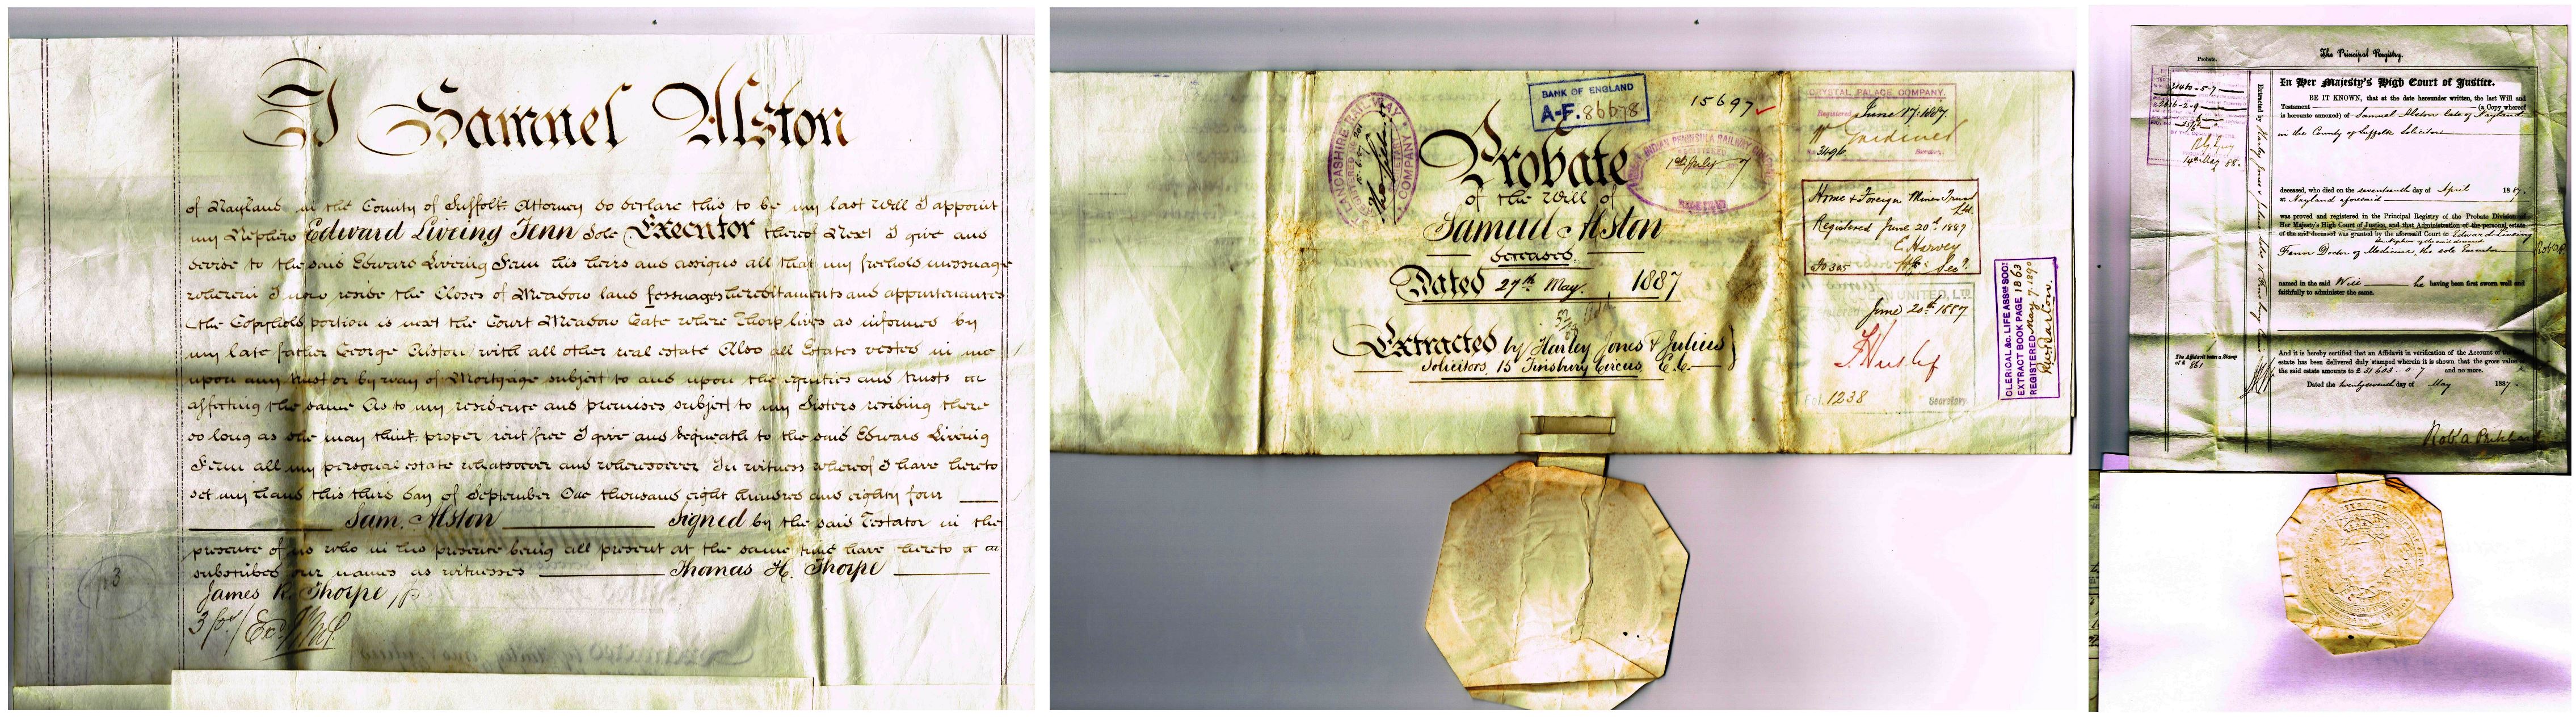 I Samuel Alston
of Nayland in the County of Suffolk Attorney do declare this to be my last Will I appoint
my Nephew Edward Liveing Fenn Sole Executor thereof Next I give and
devise to the said Edward Liveing Fenn his heirs and assigns all that my freehold messuage
wherein I now reside the Closes of Meadow land hereditaments and appurtenances
(the Copyhold portion is next the Court Meadow Gate where Thorp lives as informed by
my late father George Alston) with all other real estate Also all Estates vested in me
upon any trust or by way of Mortgage subject to and upon the equities and trusts
affecting the same As to my residence and premises subject to my Sisters residing there
so long as she may think proper rent free I give and bequeath to the said Edward Liveing
Fenn all my personal estate whatsoever and wheresoever In witness whereof I have hereto
set my hand this third day of September One thousand eight hundred and eighty four
Sam. Alston Signed by the said Testator in the
presence of us who in his presence being all present at the same time have hereto
subscribed our names as witnesses Thomas H. Thorpe
James R. Thorpe
LANCASHIRE RAILWAY COMPANY
BANK OF ENGLAND
A-F. 86678
15697
Probate
of the Will of
Samuel Alston
deceased.
Dated 27th May, 1887
Extracted by Harley Jones & Julius
Solicitors, 15 Finsbury Circus, E.C.
INDIAN PENINSULA RAILWAY
1st July 7
REGISTERED
CRYSTAL PALACE COMPANY.
Registered June 17. 1887.
W. Gardiner
3496. Secretary.
Home & Foreign Mines Trust
Ltd.
Registered June 20th 1887
E. Harvey
Fo 305 Secy.
UNITED, LTD
June 20th 1887
Fol. 1238 Secretary.
CLERICAL &c. LIFE ASSce SOCy
EXTRACT BOOK PAGE 1863
REGISTERED May 7. 1890
The Principal Registry.
Probate.
In Her Majesty's High Court of Justice.
BE IT KNOWN, that at the date hereunder written, the last Will and
Testament (a Copy whereof
is hereunto annexed) of Samuel Alston late of Nayland
in the County of Suffolk Solicitor
deceased, who died on the seventeenth day of April 1887.
at Nayland aforesaid
was proved and registered in the Principal Registry of the Probate Division of
Her Majesty's High Court of Justice, and that Administration of the personal estate
of the said deceased was granted by the aforesaid Court to Edward Liveing
the Nephew of the said deceased
Fenn Doctor of Medicine, the sole Executor
named in the said Will he having been first sworn well and
faithfully to administer the same.
And it is hereby certified that an Affidavit in verification of the Account of the
estate has been delivered duly stamped wherein it is shown that the gross value of
the said estate amounts to £ 31603 .. 0 .. 7 and no more.
Dated the twenty seventh day of May 1887.
The Affidavit bears a Stamp
of £ 861
Rob: a Pritchard